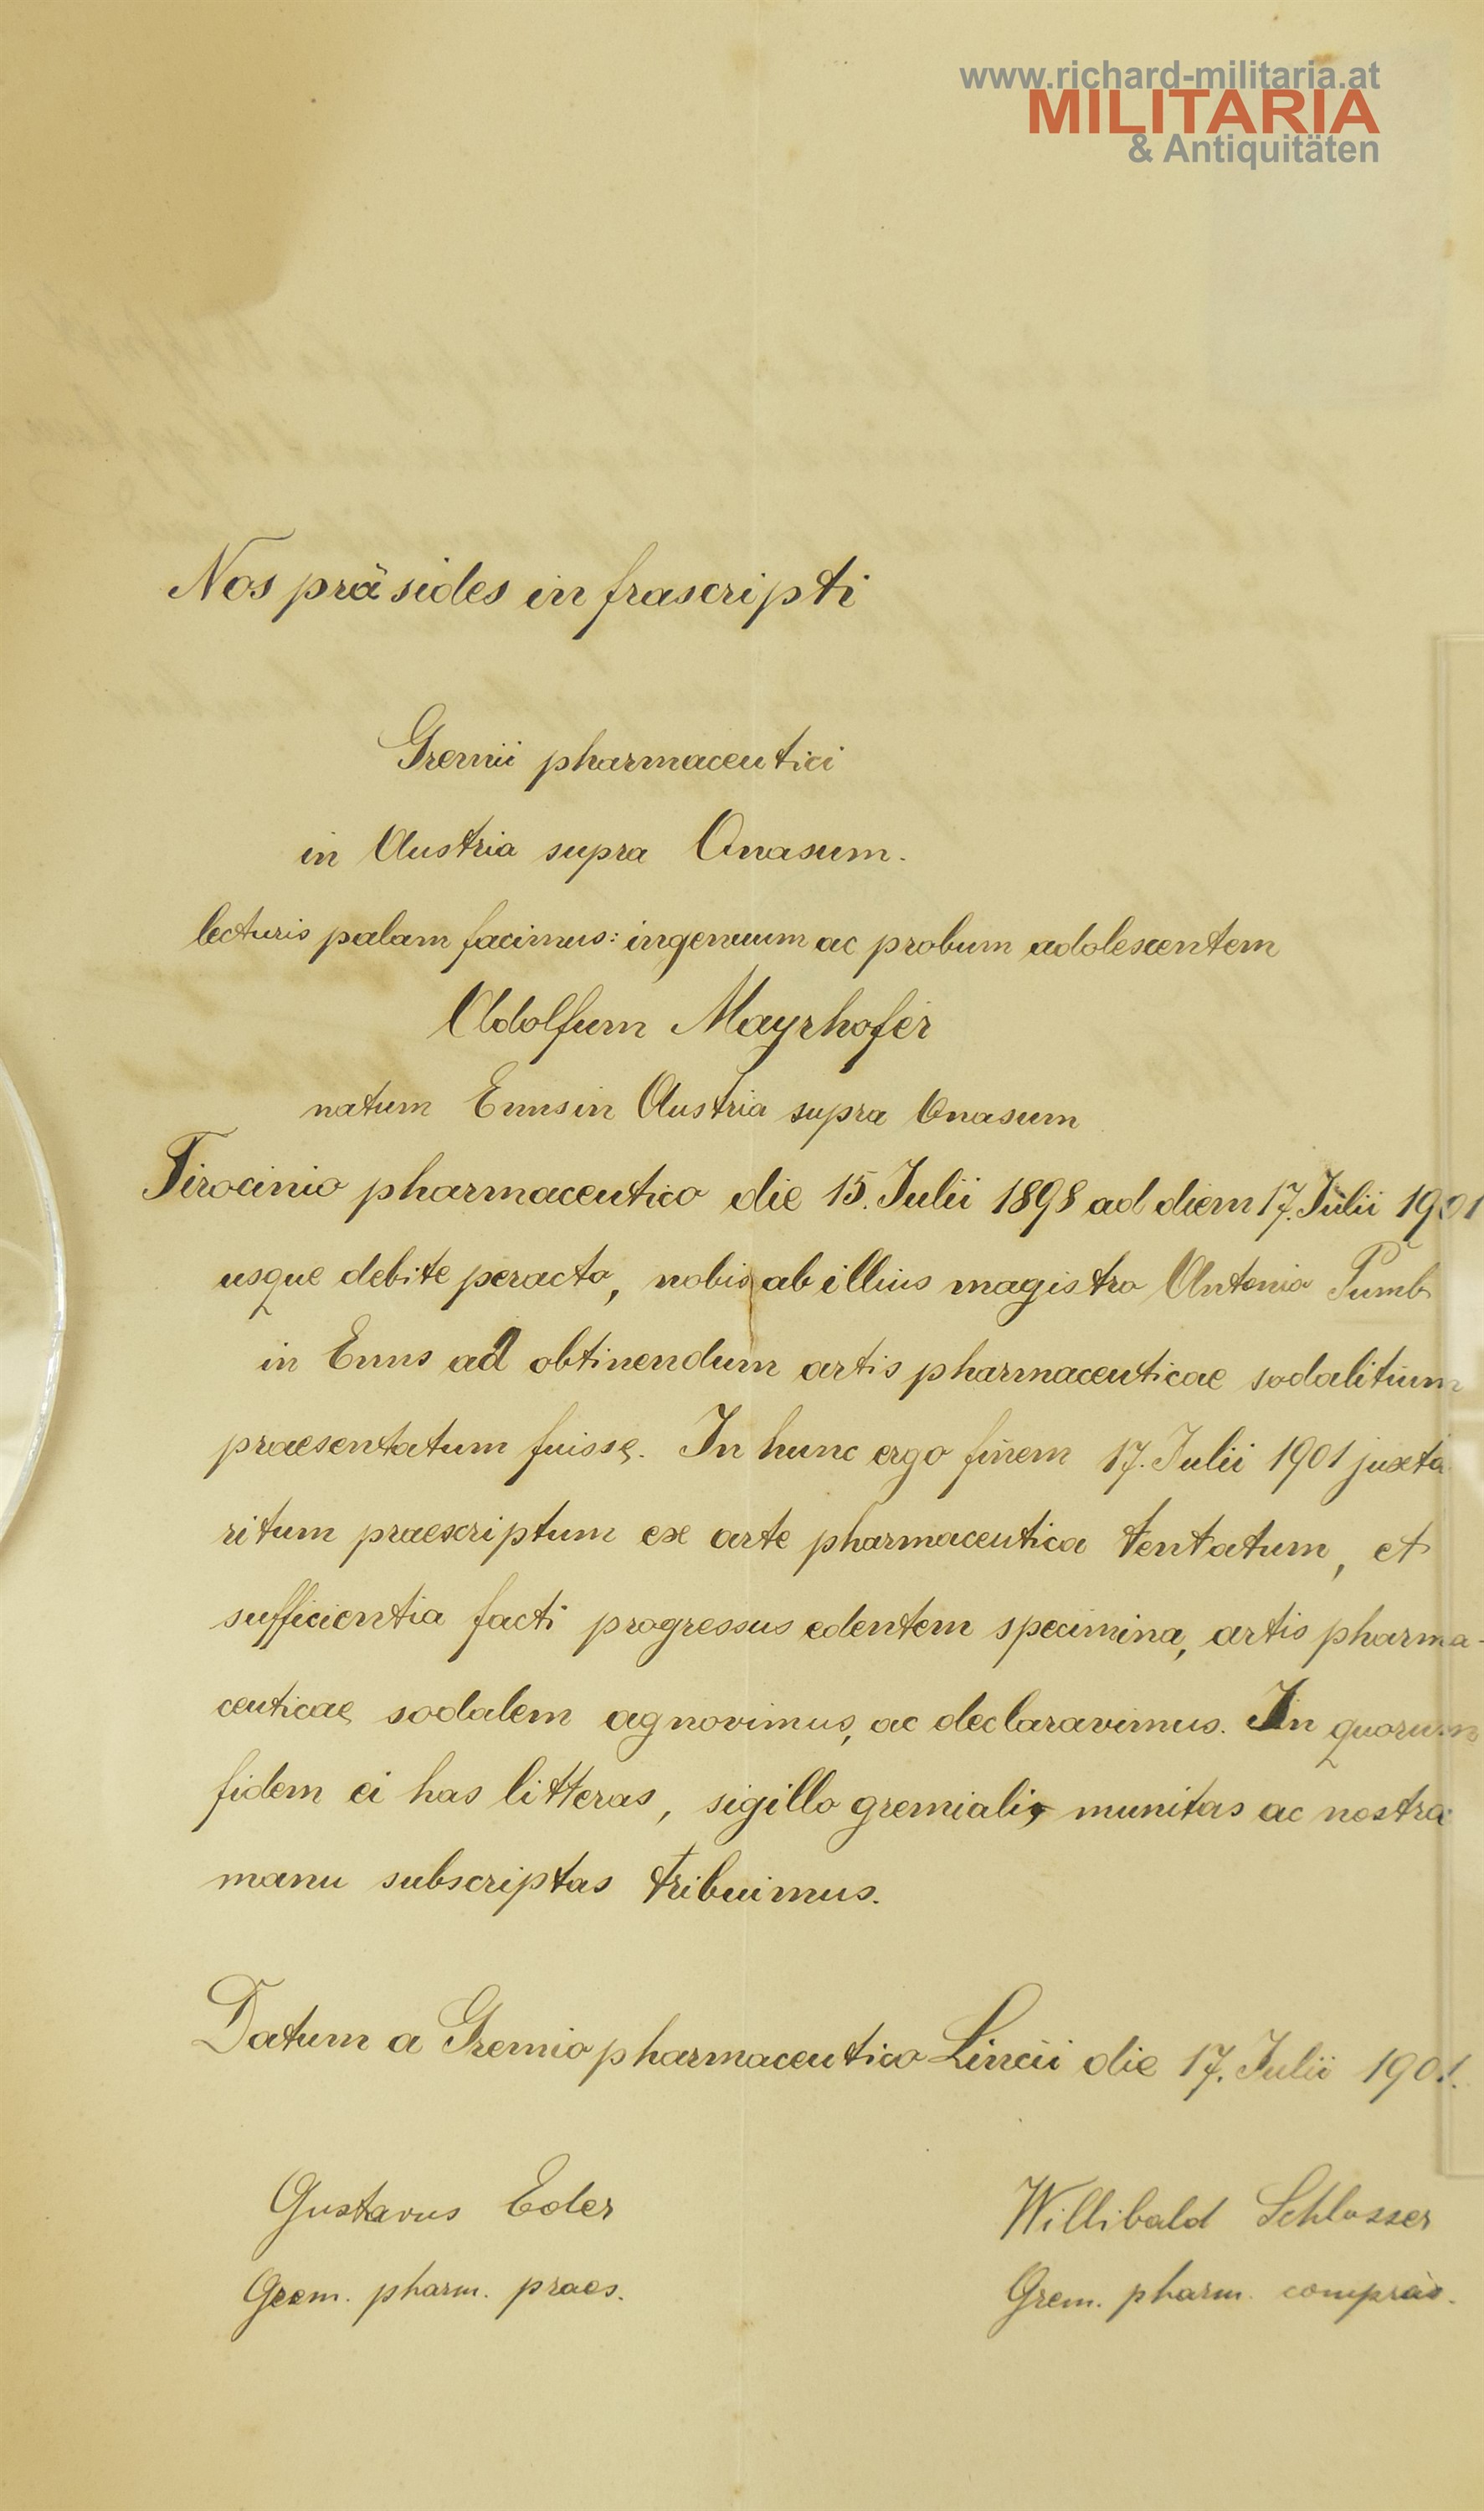 www.richard-militaria.at
MILITARIA
& Antiquitäten
Nos präsides infrascripti
Gremii pharmaceutici
in Austria supra Onasum.
lecturis palam facimus: ingenuum ac probum adolescentem
Adolfum Mayrhofer
natum Enns in Austria supra Onasum
Tirocinio pharmaceutico die 15. Julii 1898 ad diem 17. Julii 1901
usque debite peracto, nobis ab illius magistro Antonio
in Enns ad obtinendum artis pharmaceuticae sodalitium
praesentatum fuisse. In hunc ergo finem 17. Julii 1901 juxta
ritum praescriptum ex arte pharmaceutica tentatum, et
sufficientia facti progressus edentem specimina, artis pharma-
ceuticae sodalem agnovimus, ac declaravimus. In quorum
fidem ei has litteras, sigillo gremiali, munitas ac nostra
manu subscriptas tribuimus.
Datum a Gremio pharmaceutico Lincii die 17. Julii 1901.
Gustavus Eder Willibald Schlosser
Grem. pharm. praes. Grem. pharm. compräs.